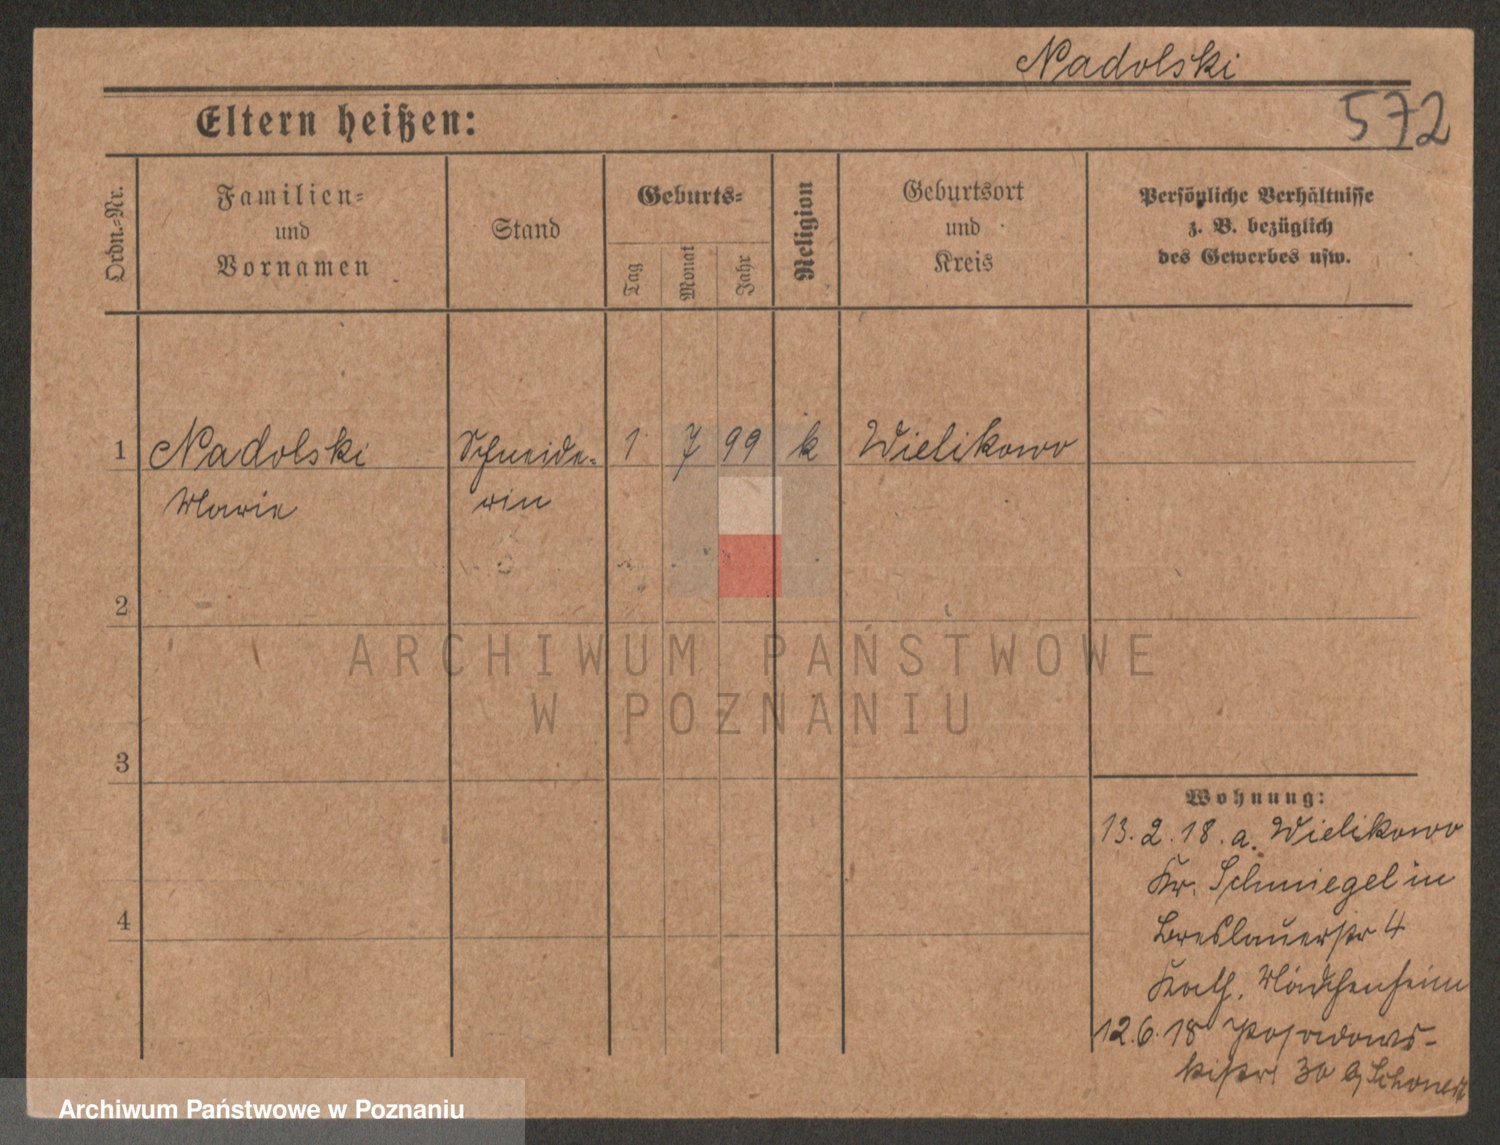 Nadolski
572
Eltern heißen:
Ordn.-Nr.
Familien-
und
Vornamen
Stand
Geburts-
Tag
Monat
Jahr
Religion
Geburtsort
und
Kreis
Persönliche Verhältnisse
z. B. bezüglich
des Gewerbes usw.
1 Nadolski Schneide- 1 7 99 k Wielikowo
Marie rin
2
ARCHIWUM PAŃSTWOWE
W POZNANIU
3
Wohnung:
13.2.18. a. Wielikowo
Kr. Schmiegel in
4
Breslauerstr 4
Kath. Mädchenheim
12.6.18 Posadows-
kistr. 30
Archiwum Państwowe w Poznaniu